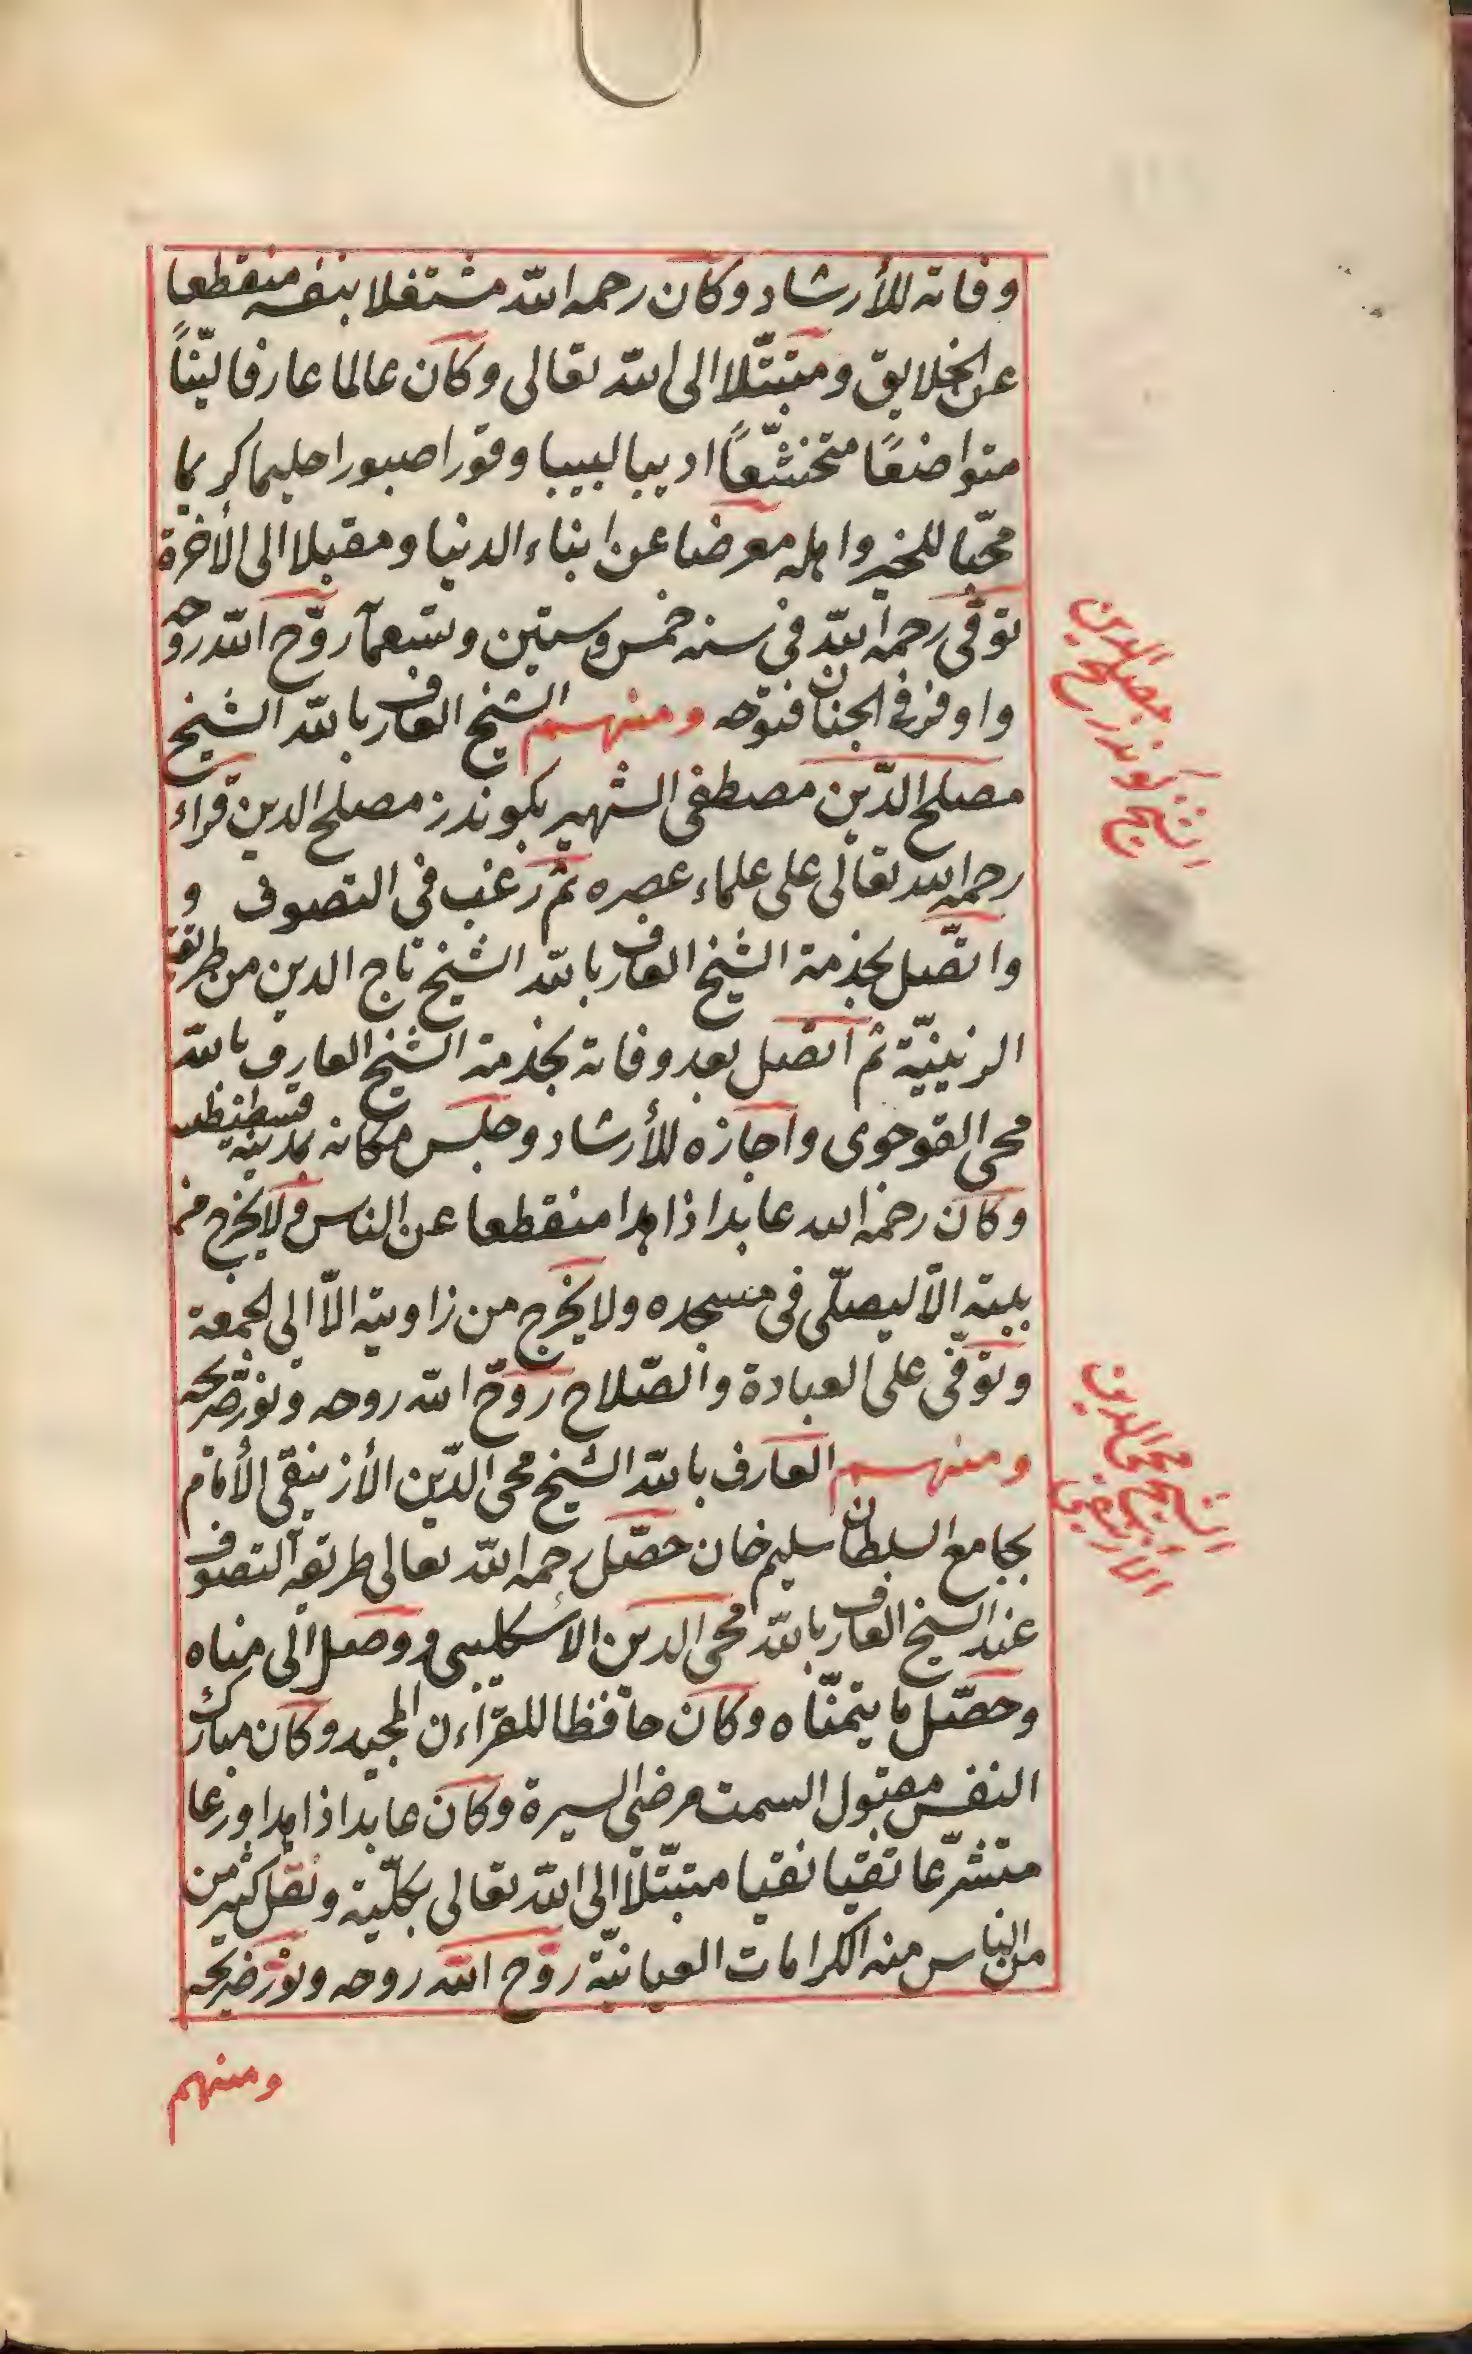 وفاته للأرشاد وكان رحمه الله مشتغلا بنفسه منقطعا
عن الخلايق ومتبتّلا الى الله تعالى وكان عالما عارفا ليّناً
متواضعًا متخشّعاً اديبا لبيبا وقورا صبورا حليما كريما
محبّا للخير واهله معرضا عن ابناء الدنيا ومقبلا الى الأخرة
توفّى رحمه الله فى سنه خمس وستين وتسعمآ روّح الله روحه
واوفر فى الجنان فتوّحه ومنهم الشيخ العارف بالله الشيخ
مصلح الدّين مصطفى الشهير بكوندز مصلح الدين قراء
رحمه الله تعالى على علماء عصره ثم رغب فى التصوف و
واتّصل بخذمة الشيخ العارف بالله الشيخ تاج الدين من طريقة
الزينيّة ثم اتصل بعد وفاته بخذمة الشيخ العارف بالله
محى القوجوى واجازه للأرشاد وجلس مكانه بمدينة قسطنطنية
وكان رحمه الله عابدا ذاهدا منقطعا عن الناس ولا يخرج من
بيته الاّ ليصلّى فى مسجده ولا يخرج من زاويته الاّ الى الجمعة
وتوفّى على العبادة والصّلاح روّح الله روحه ونوّر ضريحه
ومنهم العارف بالله الشيخ محى الدّين الأزنيقى الأمام
بجامع السلطان سليم خان حصّل رحمه الله تعالى طريقه التصوف
عند الشيخ العارف بالله محى الدين الاسكليبى ووصل الى مناه
وحصّل ما يتمنّاه وكان حافظا للقرّاءن المجيد وكان مبارك
النفس مقبول السمت مرضى السيرة وكان عابدا ذاهدا ورعا
متشرّعا تقيا نقيا متبتّلاً الى الله تعالى بكلّيته ونقل كثير من
من الناس منه الكرامات العيانيّة روّح الله روحه ونوّر ضريحه
ومنهم
الشيخ كوندز مصلح الدين
الشيخ محى الدين
الازنيقى